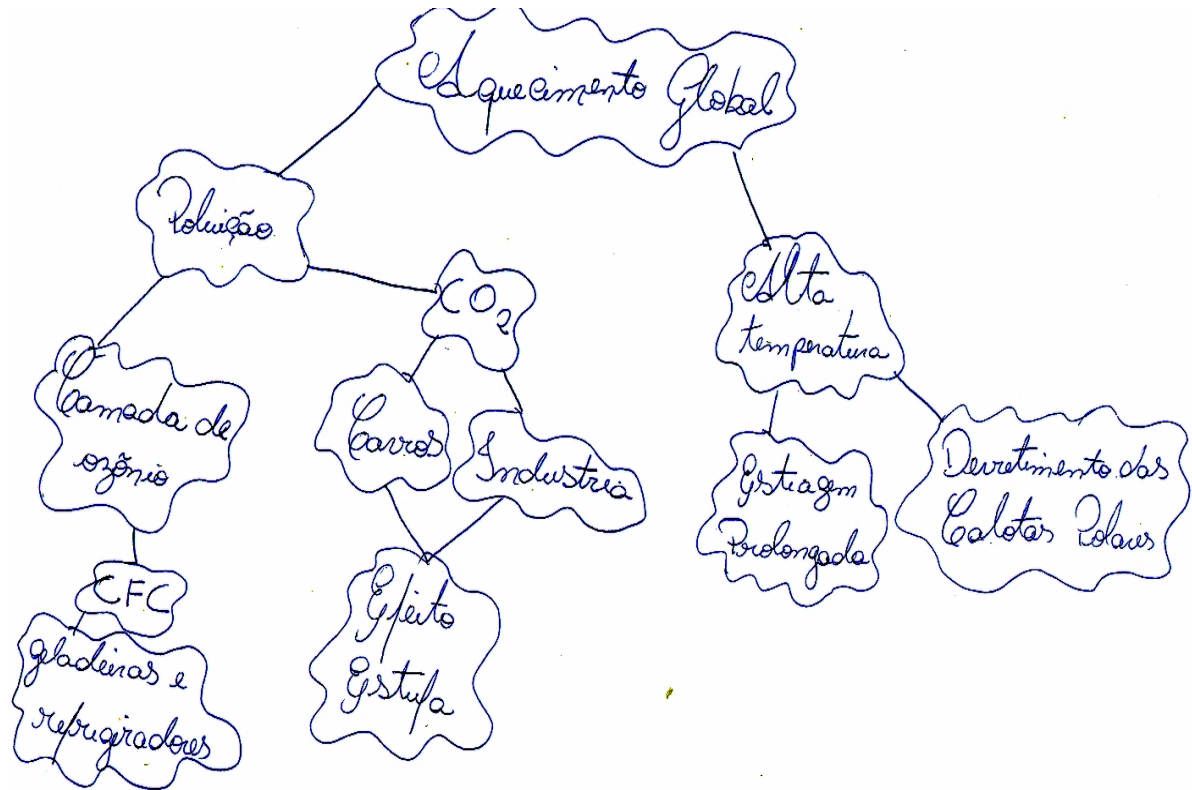 Aquecimento Global
Poluição
CO2
Alta
temperatura
Camada de
ozônio
Carros
Industria
Estiagem
Prolongada
Derretimento das
Calotas Polares
CFC
geladeiras e
refrigeradores
Efeito
Estufa